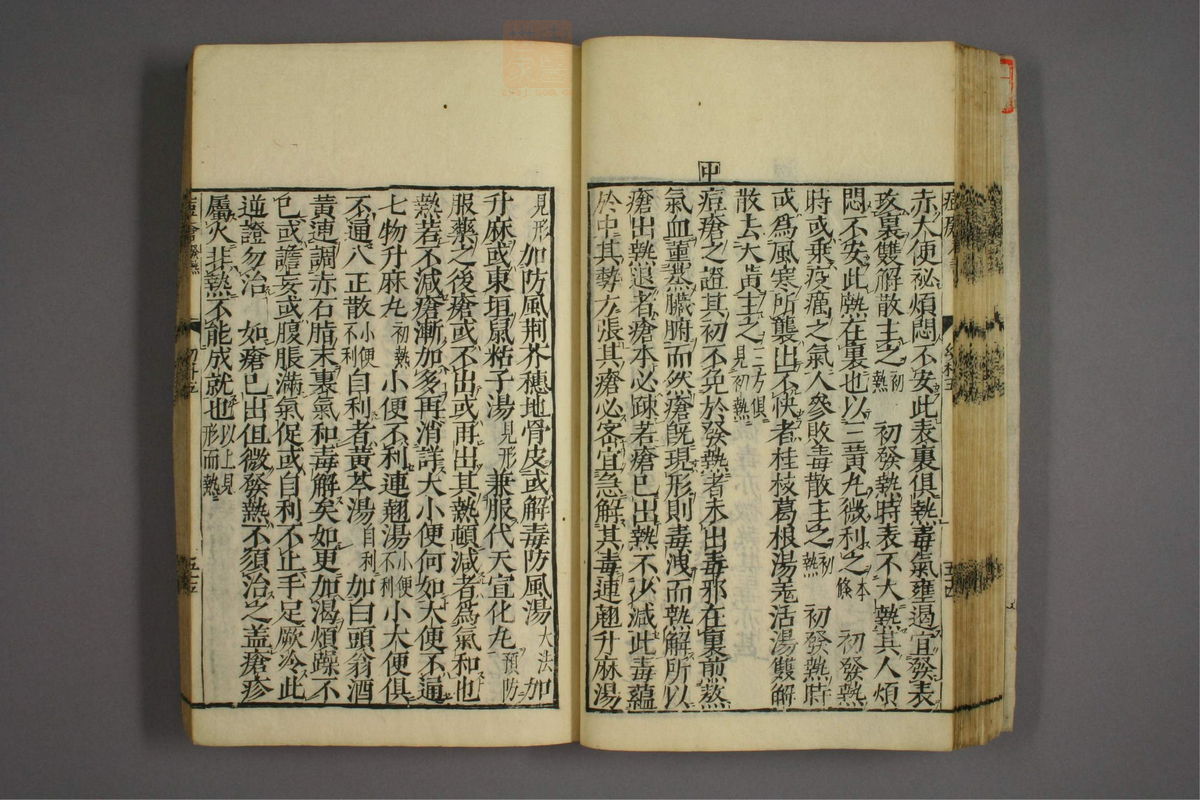 赤大便祕煩悶不安此表裏俱熱毒氣壅遏宜發表
攻裏雙解散主之初熱 初發熱時表不大熱其人煩
悶不安此熱在裏也以三黃丸微利之本條 初發熱
時或乘疫癘之氣人參敗毒散主之初熱 初發熱時
或爲風寒所襲出不快者桂枝葛根湯羌活湯雙解
散去大黃主之三方俱見初熱
中
痘瘡之證其初不免於發熱者未出毒邪在裏煎熬
氣血薰蒸臟腑而然瘡旣現形則毒洩而熱解所以
瘡出熱退者瘡本必疎若瘡已出熱不少減此毒蘊
於中其勢方張其瘡必密宜急解其毒連翹升麻湯
見形加防風荆芥穗地骨皮或解毒防風湯大法加
升麻或東垣鼠粘子湯見形兼服代天宣化丸預防
服藥之後瘡或不出或再出其熱頓減者爲氣和也
熱若不減瘡漸加多再消詳大小便何如大便不通
七物升麻丸初熱小便不利連翹湯小便不利小大便俱
不通八正散小便不利自利者黃芩湯自利加白頭翁酒
黃連調赤石脂末裏氣和毒解矣如更加渴煩躁不
已或譫妄或腹脹滿氣促或自利不止手足厥冷此
逆證勿治 如瘡已出但微發熱不須治之盖瘡疹
屬火非熱不能成就也以上見形而熱
痘瘡發熱